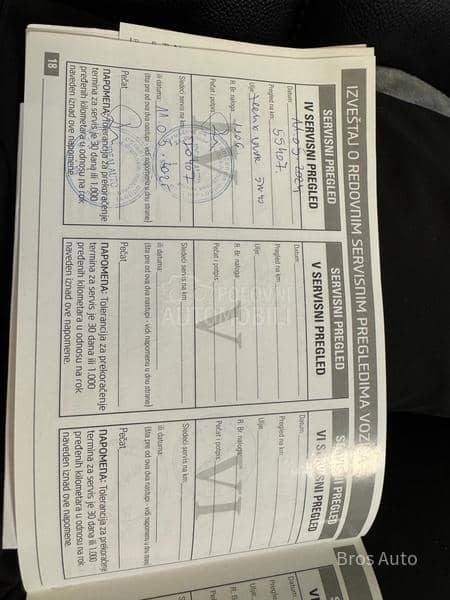 IZVEŠTAJ O REDOVNIM SERVISNIM PREGLEDIMA VOZI
SERVISNI PREGLED
IV SERVISNI PREGLED
Datum: 11.05.2024
Pregled na km: 55407
Ulje:
R. Br. naloga:
Pečat i potpis:
Sledeći servis na km:
ili datuma: 11.05.2025
(šta pre od ova dva nastupi - vidi napomenu u dnu strane)
Pečat
ПAPOMEПA: Tolerancija za prekoračenje
termina za servis je 30 dana ili 1.000
pređenih kilometara u odnosu na rok
naveden iznad ove napomene.
SERVISNI PREGLED
V SERVISNI PREGLED
Datum:
Pregled na km:
Ulje:
R. Br. naloga:
Pečat i potpis:
V
Sledeći servis na km:
ili datuma:
(šta pre od ova dva nastupi - vidi napomenu u dnu strane)
Pečat
ПAPOMEПA: Tolerancija za prekoračenje
termina za servis je 30 dana ili 1.000
pređenih kilometara u odnosu na rok
naveden iznad ove napomene.
SERVISNI PREGLED
VI SERVISNI PREGLED
Datum:
Pregled na km:
Ulje:
R. Br. naloga:
Pečat i potpis:
VI
Sledeći servis na km:
ili datuma:
(šta pre od ova dva nastupi - vidi napomenu u dnu strane)
Pečat
ПAPOMEПA: Tolerancija za prekoračenje
termina za servis je 30 dana ili 1.000
pređenih kilometara u odnosu na rok
naveden iznad ove napomene.
18
POLOVNI
AUTOMOBILI
Bros Auto